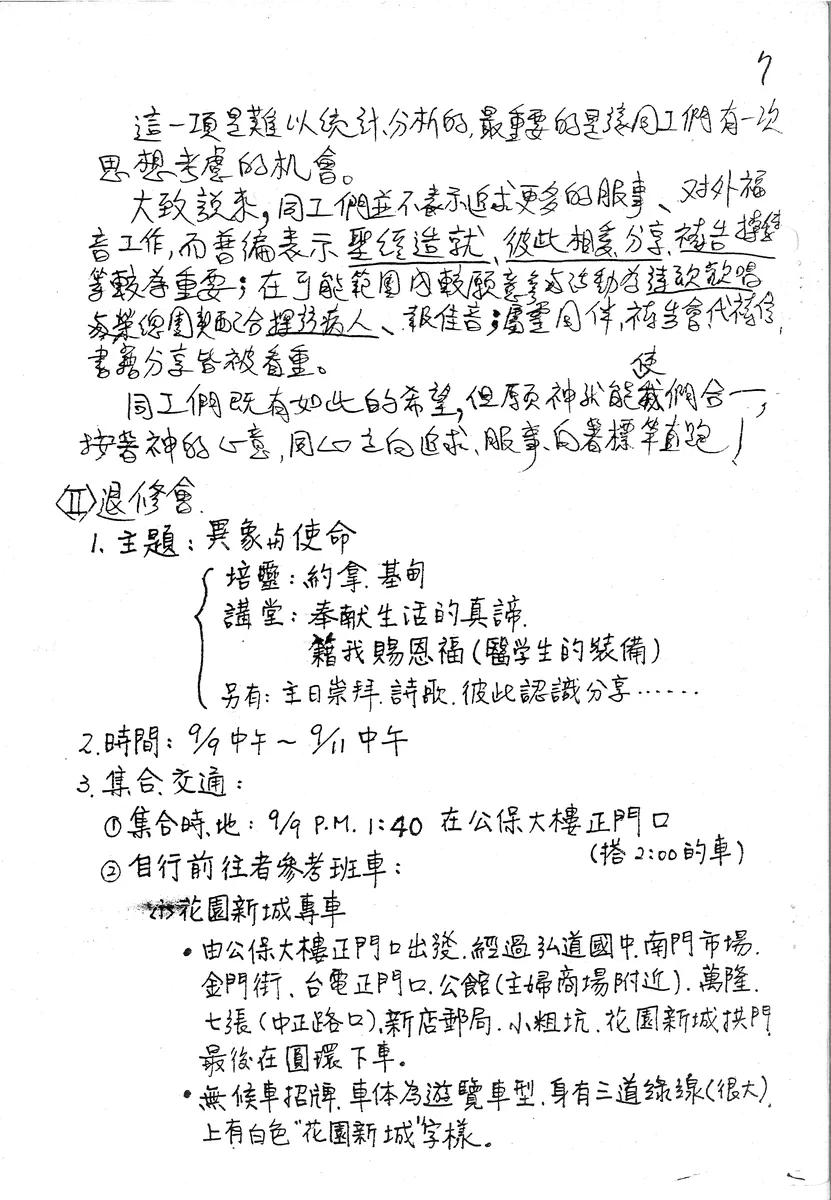 7
這一項是難以統計、分析的,最重要的是讓同工們有一次
思想考慮的机會。
大致說来,同工們並不表示追求更多的服事、对外福
音工作,而普編表示聖經造就、彼此相爱、分享、禱告
等較為重要;在可能範圍内較願意
與榮總團契配合探訪病人、報佳音;屬靈同伴,禱告會、代禱信,
書籍分享皆被看重。
同工們既有如此的希望,但願神就能使我們合一,
按著神的心意,同心走向追求、服事、向著標竿直跑!
〈II〉退修會.
1. 主題:異象与使命
培靈:約拿.基甸
講堂:奉献生活的真諦.
藉我賜恩福(醫学生的裝備)
另有:主日崇拜.詩歌.彼此認識分享……
2.時間:9/9中午~9/11中午
3.集合.交通:
①集合時.地:9/9 P.M. 1:40 在公保大樓正門口
(搭2:00的車)
②自行前往者參考班車:
花園新城專車
•由公保大樓正門口出發.經過弘道國中.南門市場.
金門街、台電正門口.公館(主婦商場附近).萬隆.
七張(中正路口)、新店郵局.小粗坑.花園新城拱門
最後在圓環下車。
•無候車招牌.車体為遊覽車型.身有三道綠線(很大).
上有白色"花園新城"字樣。